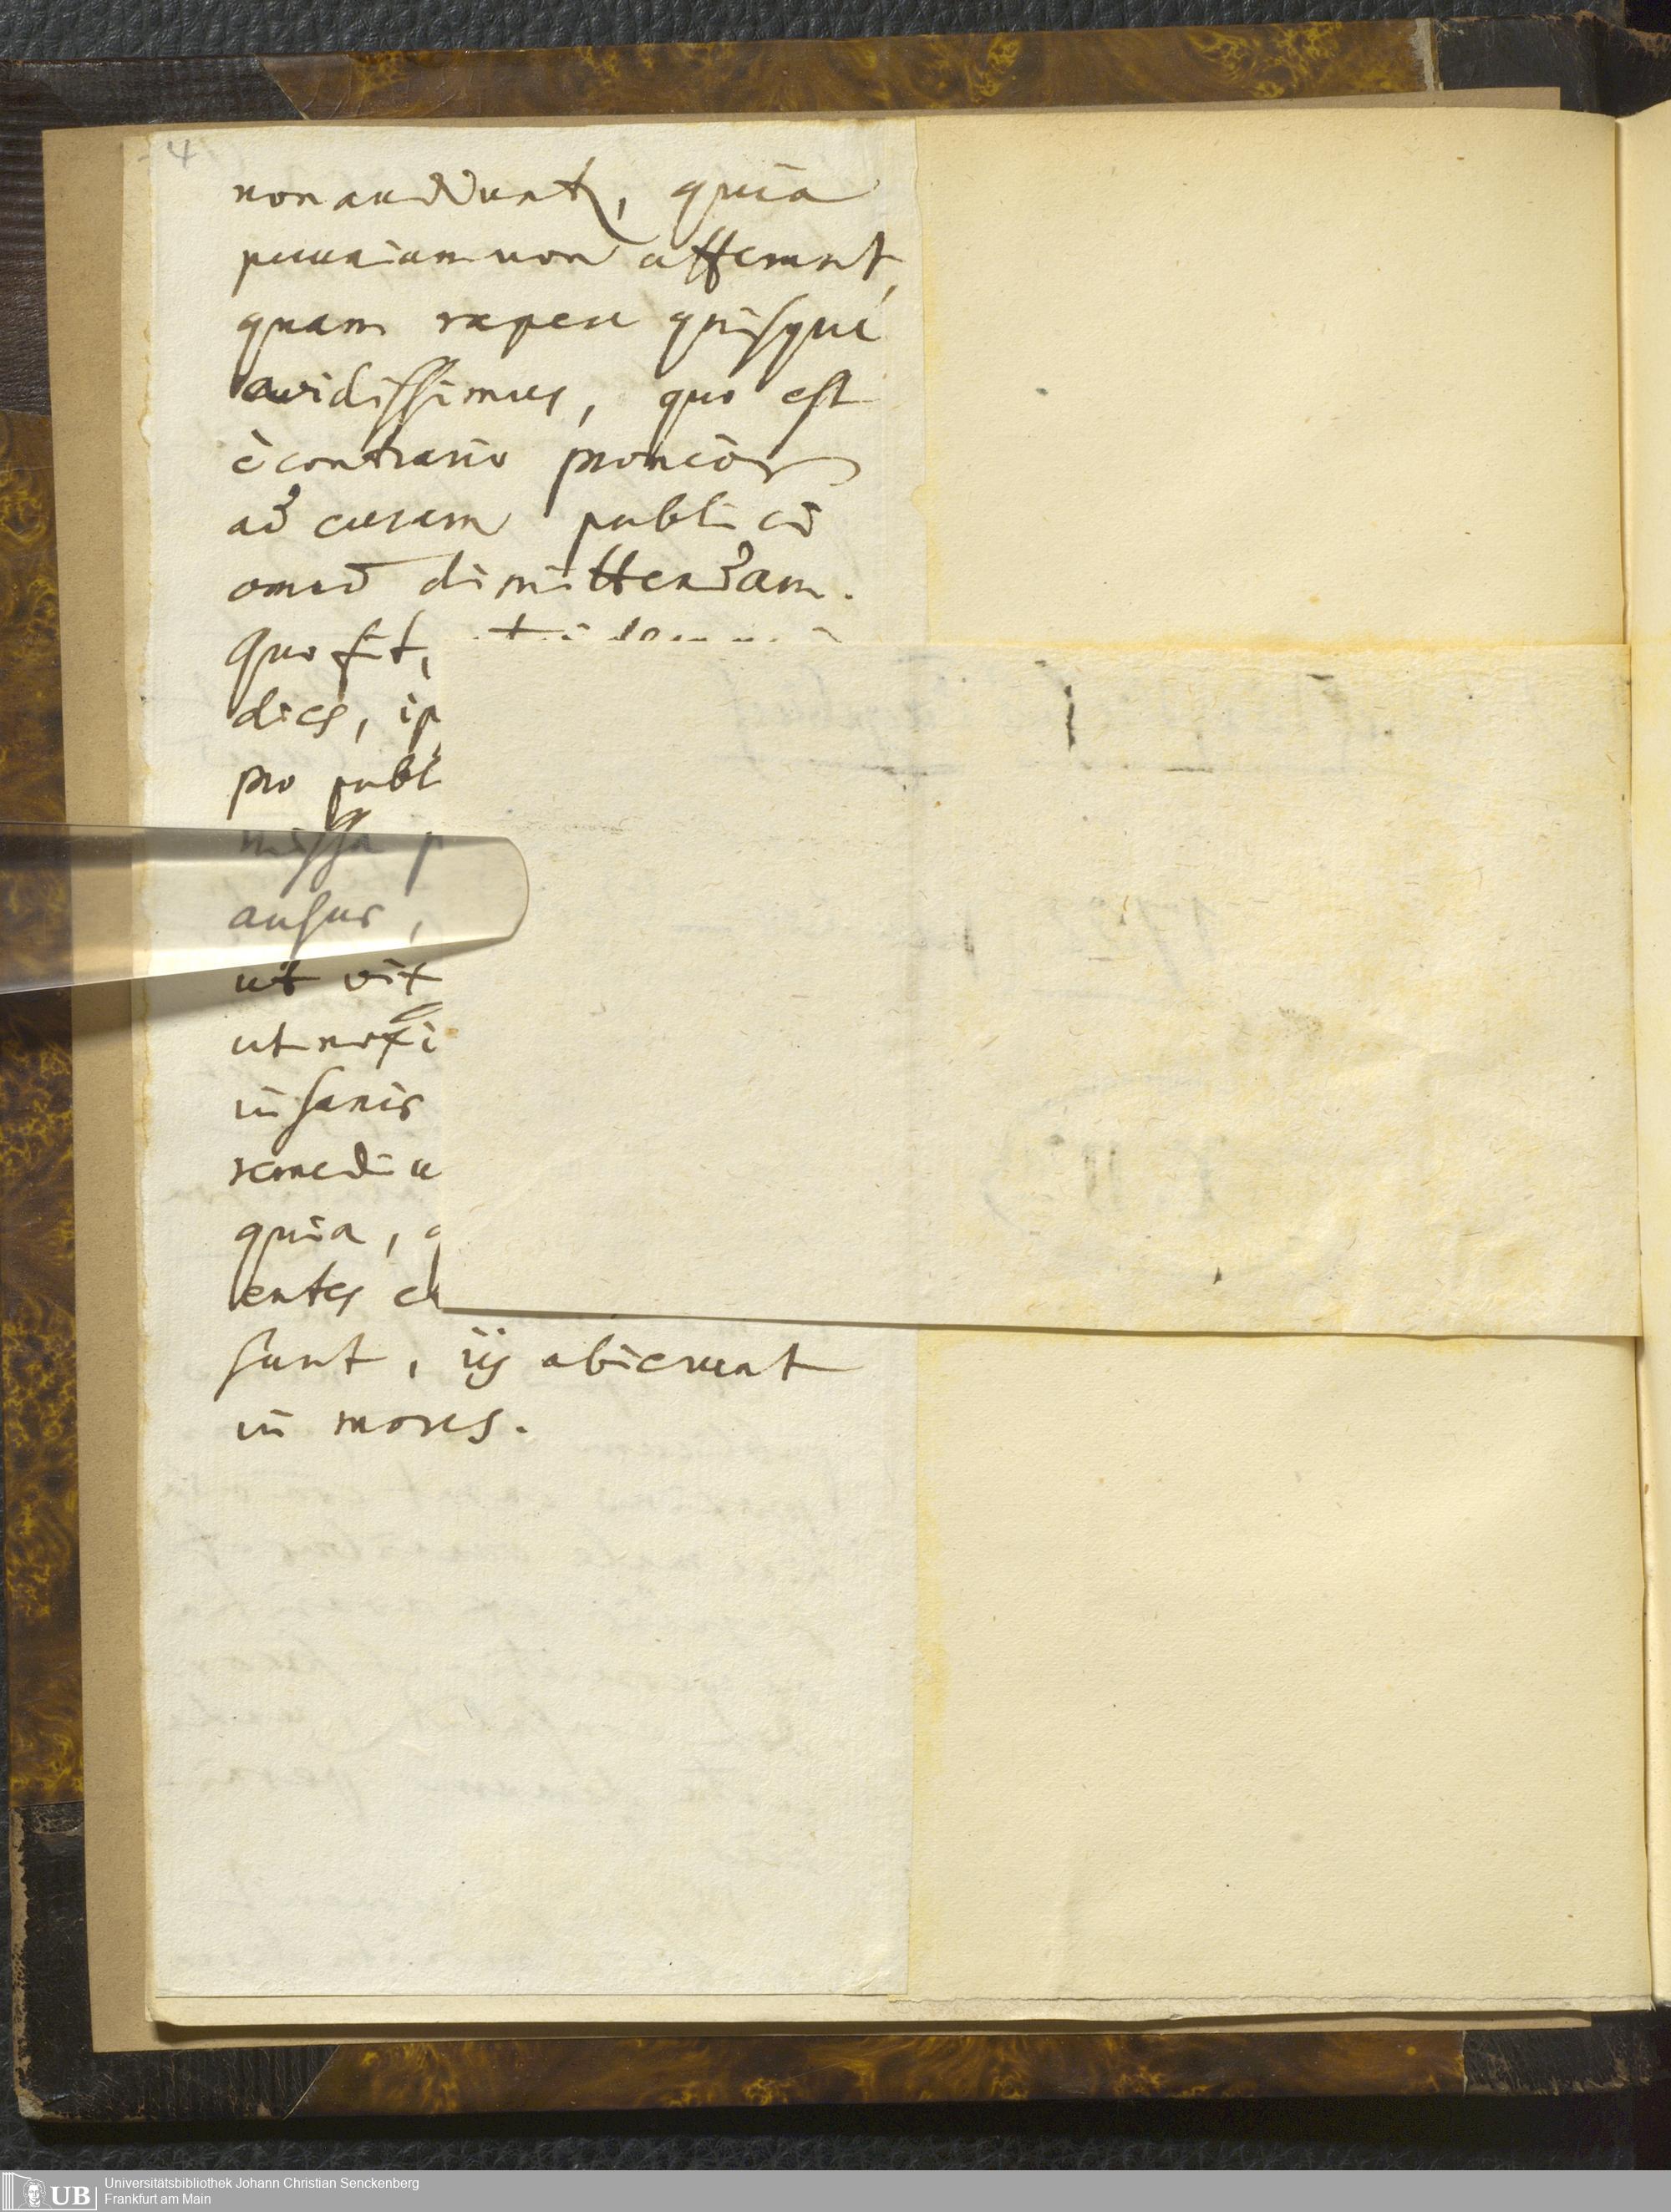 4
non audiunt, quia
pecuniam non afferunt,
quam rapere quisque
avidissimus, quo est
è contrario pronior
ad curam publici
omnem dimittendam.
Quo fit,
dies, ip
pro publ
missa p
ausus,
ut vit
ut noxi
insanis
remediu
quia, q
entes
sunt, ij abierunt
in mores.
UB
Universitätsbibliothek Johann Christian Senckenberg
Frankfurt am Main